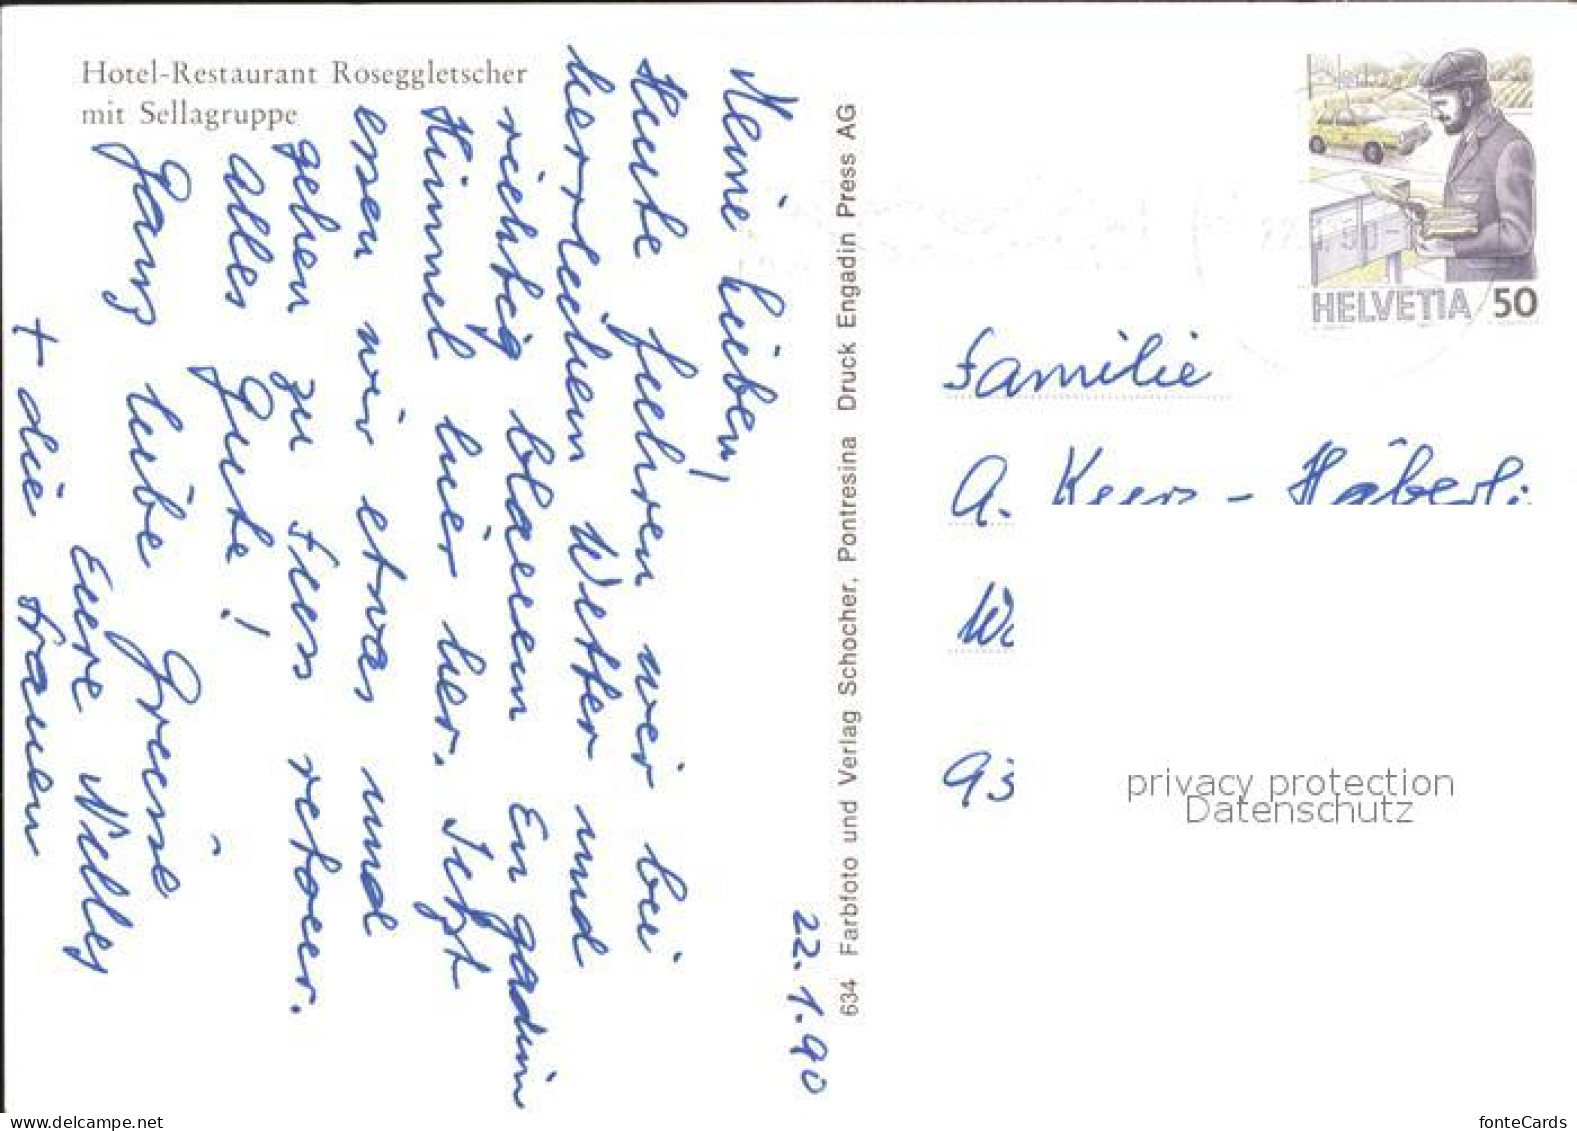 Hotel-Restaurant Roseggletscher
mit Sellagruppe
22.1.90
Meine Lieben!
Heute fuhren wir bei
herrlichem Wetter und
richtig blauem Engadin
Himmel hier her. Jetzt
essen wir etwas und
gehen zu Fuss retour.
Alles Gute!
Ganz liebe Grüsse
Eure Nelley
+ die
634 Farbfoto und Verlag Schocher, Pontresina Druck Engadin Press AG
HELVETIA 50
Familie
A. - Häberli
93
privacy protection
Datenschutz
fonteCards